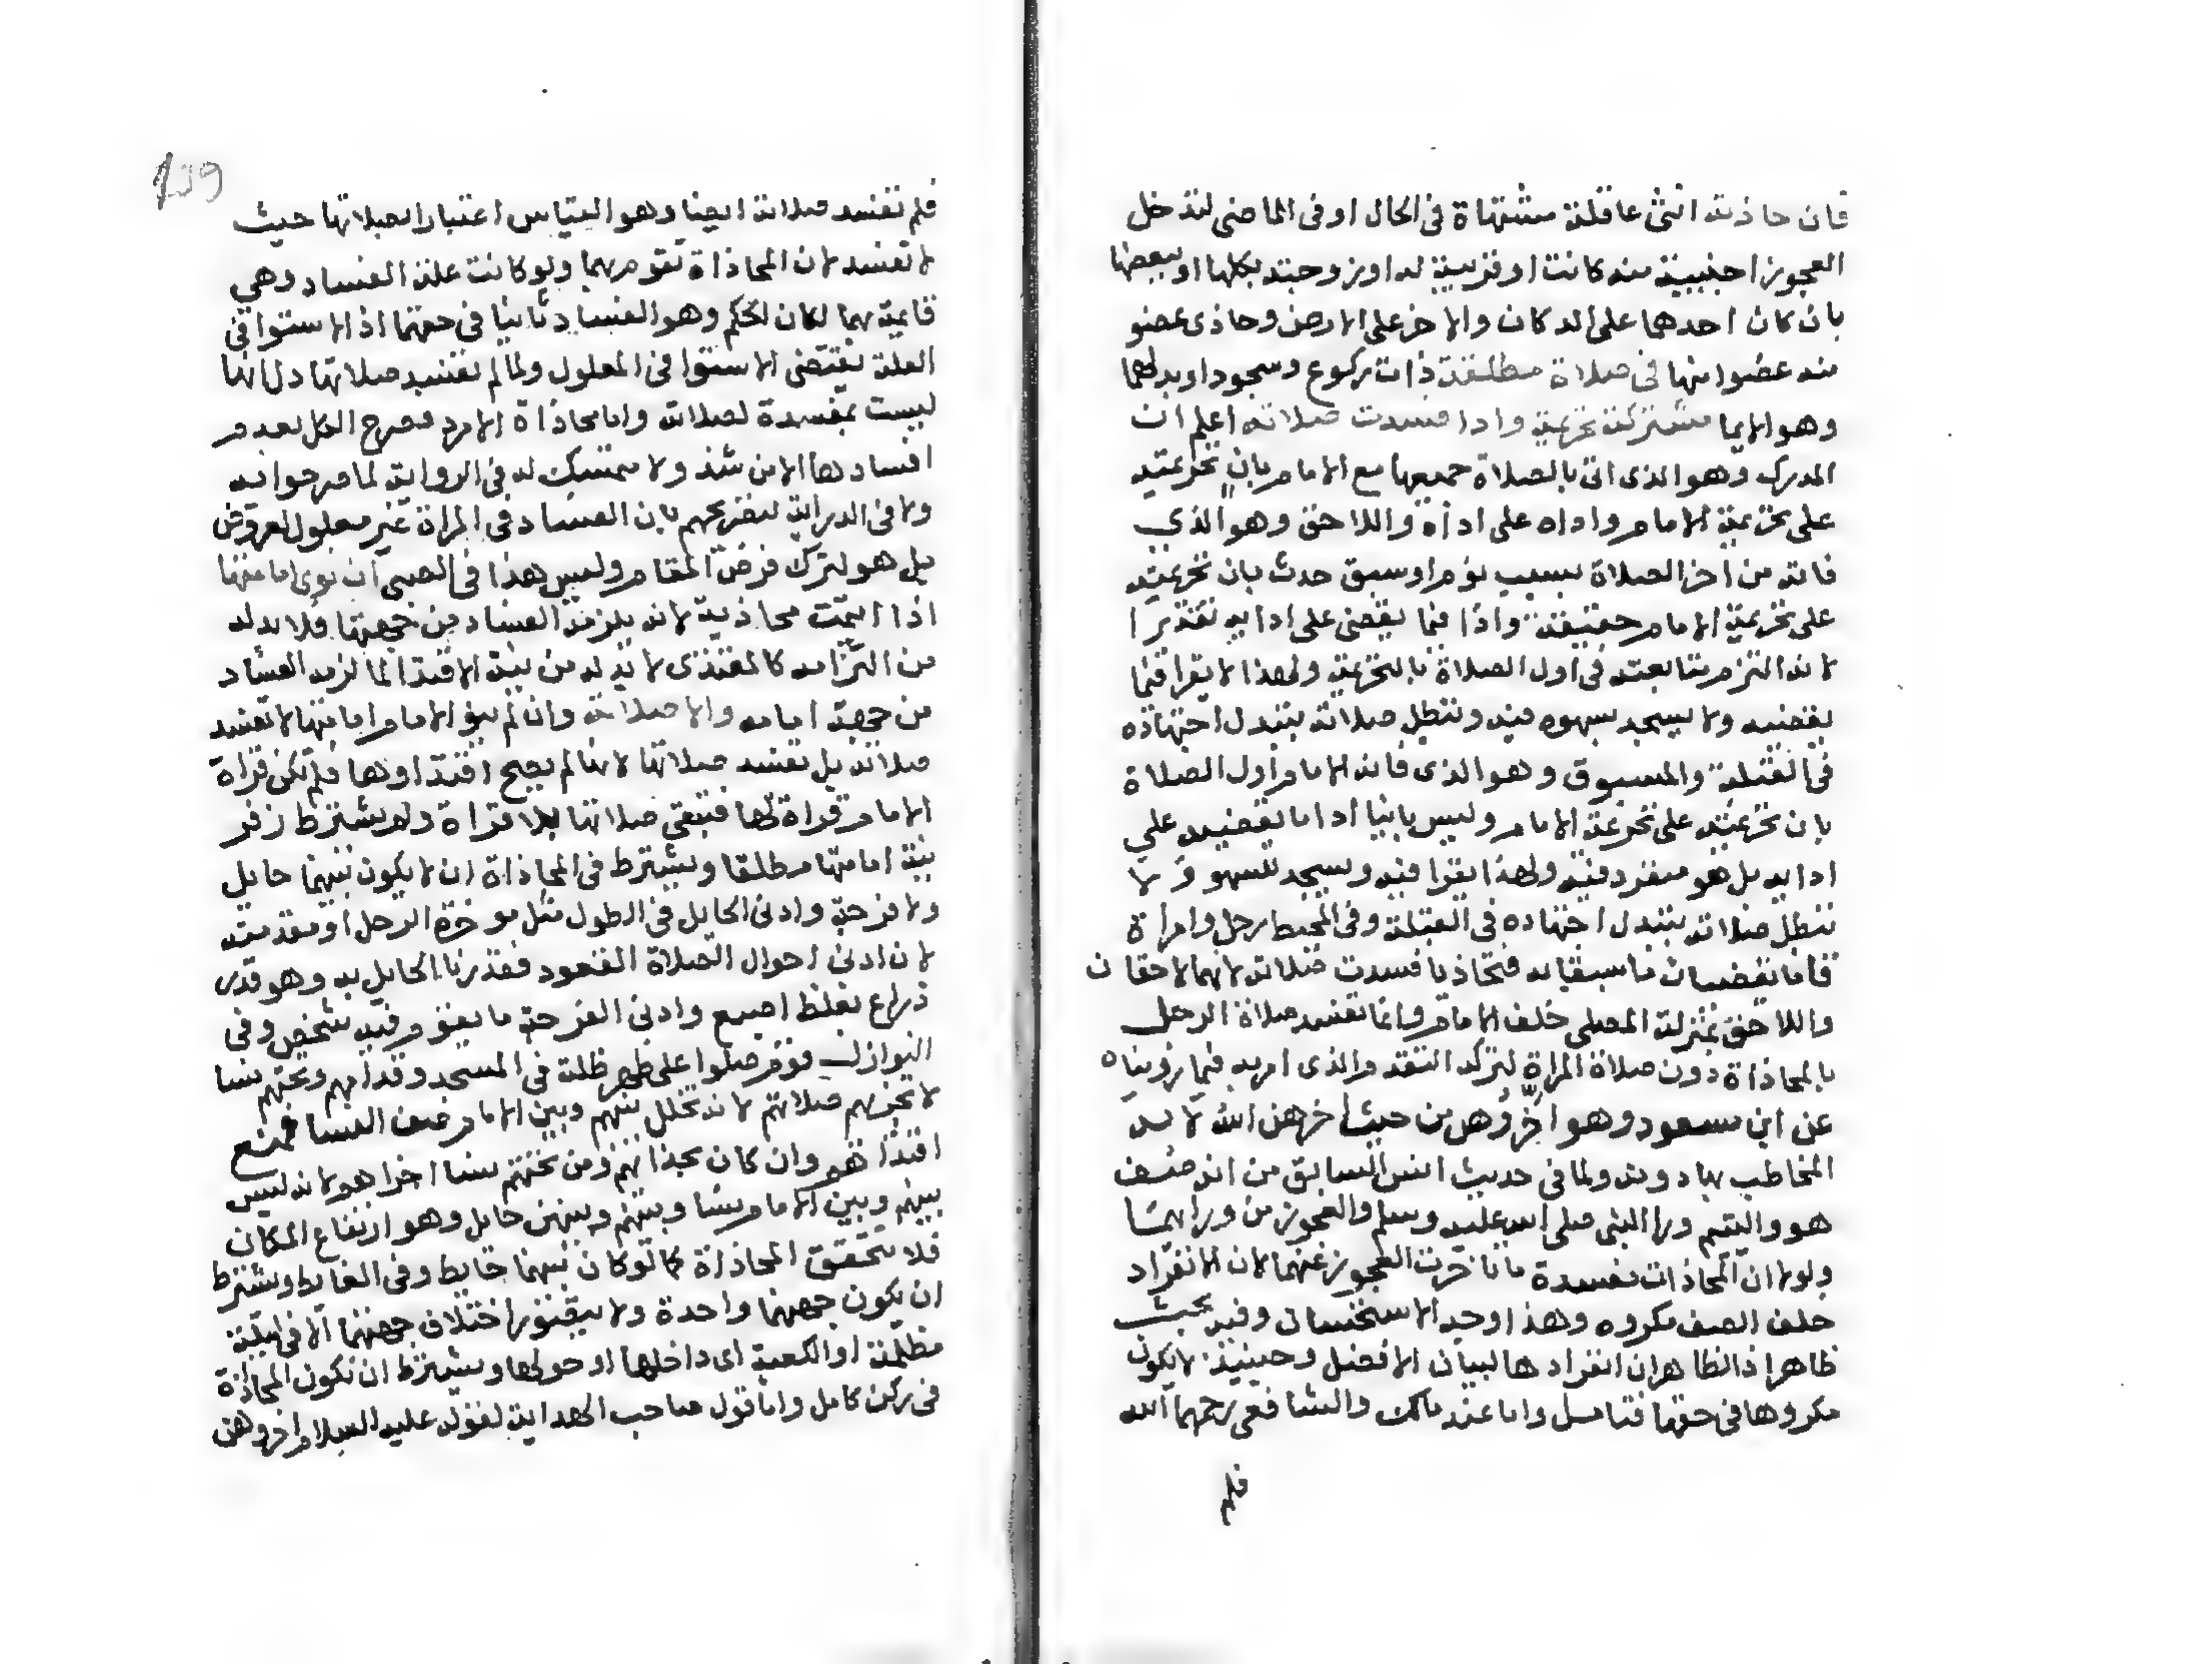 فان حاذته انثى عاقلة مشتهاة فى الحال او فى الماضى لتدخل
العجوز اجنبية منه كانت او قريبة له او زوجته بكلها او ببعضها
بان كان احدهما على الدكان والاخر على الارض وحاذى عضو
منه عضوا منها فى صلاة مطلقة ذات ركوع وسجود او بدلهما
وهو الايما مشتركة تحريمة وادا فسدت صلاته اعلم ان
المدرك وهو الذى اتى بالصلاة جميعها مع الامام بان تحريمته
على تحريمة الامام واداه على اداه واللاحق وهو الذي
فاته من اخر الصلاة بسبب نوم او سبق حدث بان تحريمته
على تحريمة الامام حقيقة وادا فيما يقضى على ادايه تقديرا
لانه التزم متابعته فى اول الصلاة بالتحريمة ولهذا لا يقرا فيما
يقضيه ولا يسجد بسهوه فيه وتبطل صلاته بتبدل اجتهاده
فى القبلة والمسبوق وهو الذى فاته الامام اول الصلاة
بان تحريمته على تحريمة الامام وليس بانيا ادا ما يقضيه علي
ادايه بل هو منفرد فيه ولهذا يقرا فيه ويسجد للسهو ولا
تبطل صلاته بتبدل اجتهاده فى القبلة وفى المحيط رجل وامراة
قاما يقضيان ما سبقا به فتحاذيا فسدت صلاته لانهما لاحقان
واللاحق بمنزلة المصلى خلف الامام وانما تفسد صلاة الرجل
بالمحاذاة دون صلاة المراة لتركه التقدم الذى امر به فيما رويناه
عن ابن مسعود وهو اخروهن من حيث اخرهن الله لانه
المخاطب به دونها ولما فى حديث انس السابق من انه صف
هو واليتيم ورا النبى صلى الله عليه وسلم والعجوز من ورايهما
ولولا ان المحاذات مفسدة ما تاخرت العجوز عنهما لان الانفراد
خلف الصف مكروه وهذا وجه الاستحسان وفيه بحث
ظاهر اذ الظاهر ان انفرادها لبيان الافضل وحينيذ لا يكون
مكروها فى حقها فتامل واما عند مالك والشافعى رحمهما الله
فلم
فلم تفسد صلاته ايضا وهو القياس اعتبارا بصلاتها حيث
لا تفسد لان المحاذاة تقوم بهما ولو كانت علة الفساد وهي
قايمة بهما لكان الحكم وهو الفساد ثابتا فى حقهما اذ الاستوا فى
العلة يقتضى الاستوا فى المعلول ولما لم تفسد صلاتها دل انها
ليست بمفسدة لصلاته واما محاذاة الامرد فصرح الكل بعدم
افسادها الا من شذ ولا متمسك له فى الرواية لما مر جوابه
ولا فى الدراية لتصريحهم بان الفساد فى المراة غير معلول بعروض
بل هو لترك فرض المقام وليس هذا فى الصبى ان نوى امامتها
اذا ايتمت محاذية لانه يلزمه الفساد من جهتها فلا بد له
من التزامه كالمقتدى لا بد له من نية الاقتدا لما لزمه الفساد
من جهة امامه والا صلاته وان لم ينو الامام امامتها لا تفسد
صلاته بل تفسد صلاتها لانها لم يصح اقتداوها فلم تكن قراة
الامام قراة لها فتبقى صلاتها بلا قراة ولم يشترط زفر
نية امامتها مطلقا ويشترط فى المحاذاة ان لا يكون بينهما حايل
ولا فرجة وادنى الحايل فى الطول مثل موخرة الرحل او مقدمته
لان ادنى احوال الصلاة القعود فقدرنا الحايل به وهو قدر
ذراع بغلظ اصبع وادنى الفرجة ما يقوم فيه شخص وفى
النوازل قوم صلوا على ظهر ظلة فى المسجد وقدامهم وتحتهم نسا
لا تجزيهم صلاتهم لانه تخلل بينهم وبين الامام صف النسا فمنع
اقتداهم وان كان بحذايهم من تحتهم نسا اجزاهم لانه ليس
بينهم وبين الامام نسا وبينهم وبينهن حايل وهو ارتفاع المكان
فلا تتحقق المحاذاة كما لو كان بينهما حايط وفى الغاية ويشترط
ان يكون جهتهما واحدة ولا يتصور اختلاف جهتهما الا فى ليلة
مظلمة او الكعبة اى داخلها او حولها ويشترط ان تكون المحاذاة
فى ركن كامل واما قول صاحب الهداية لقوله عليه السلام اخروهن